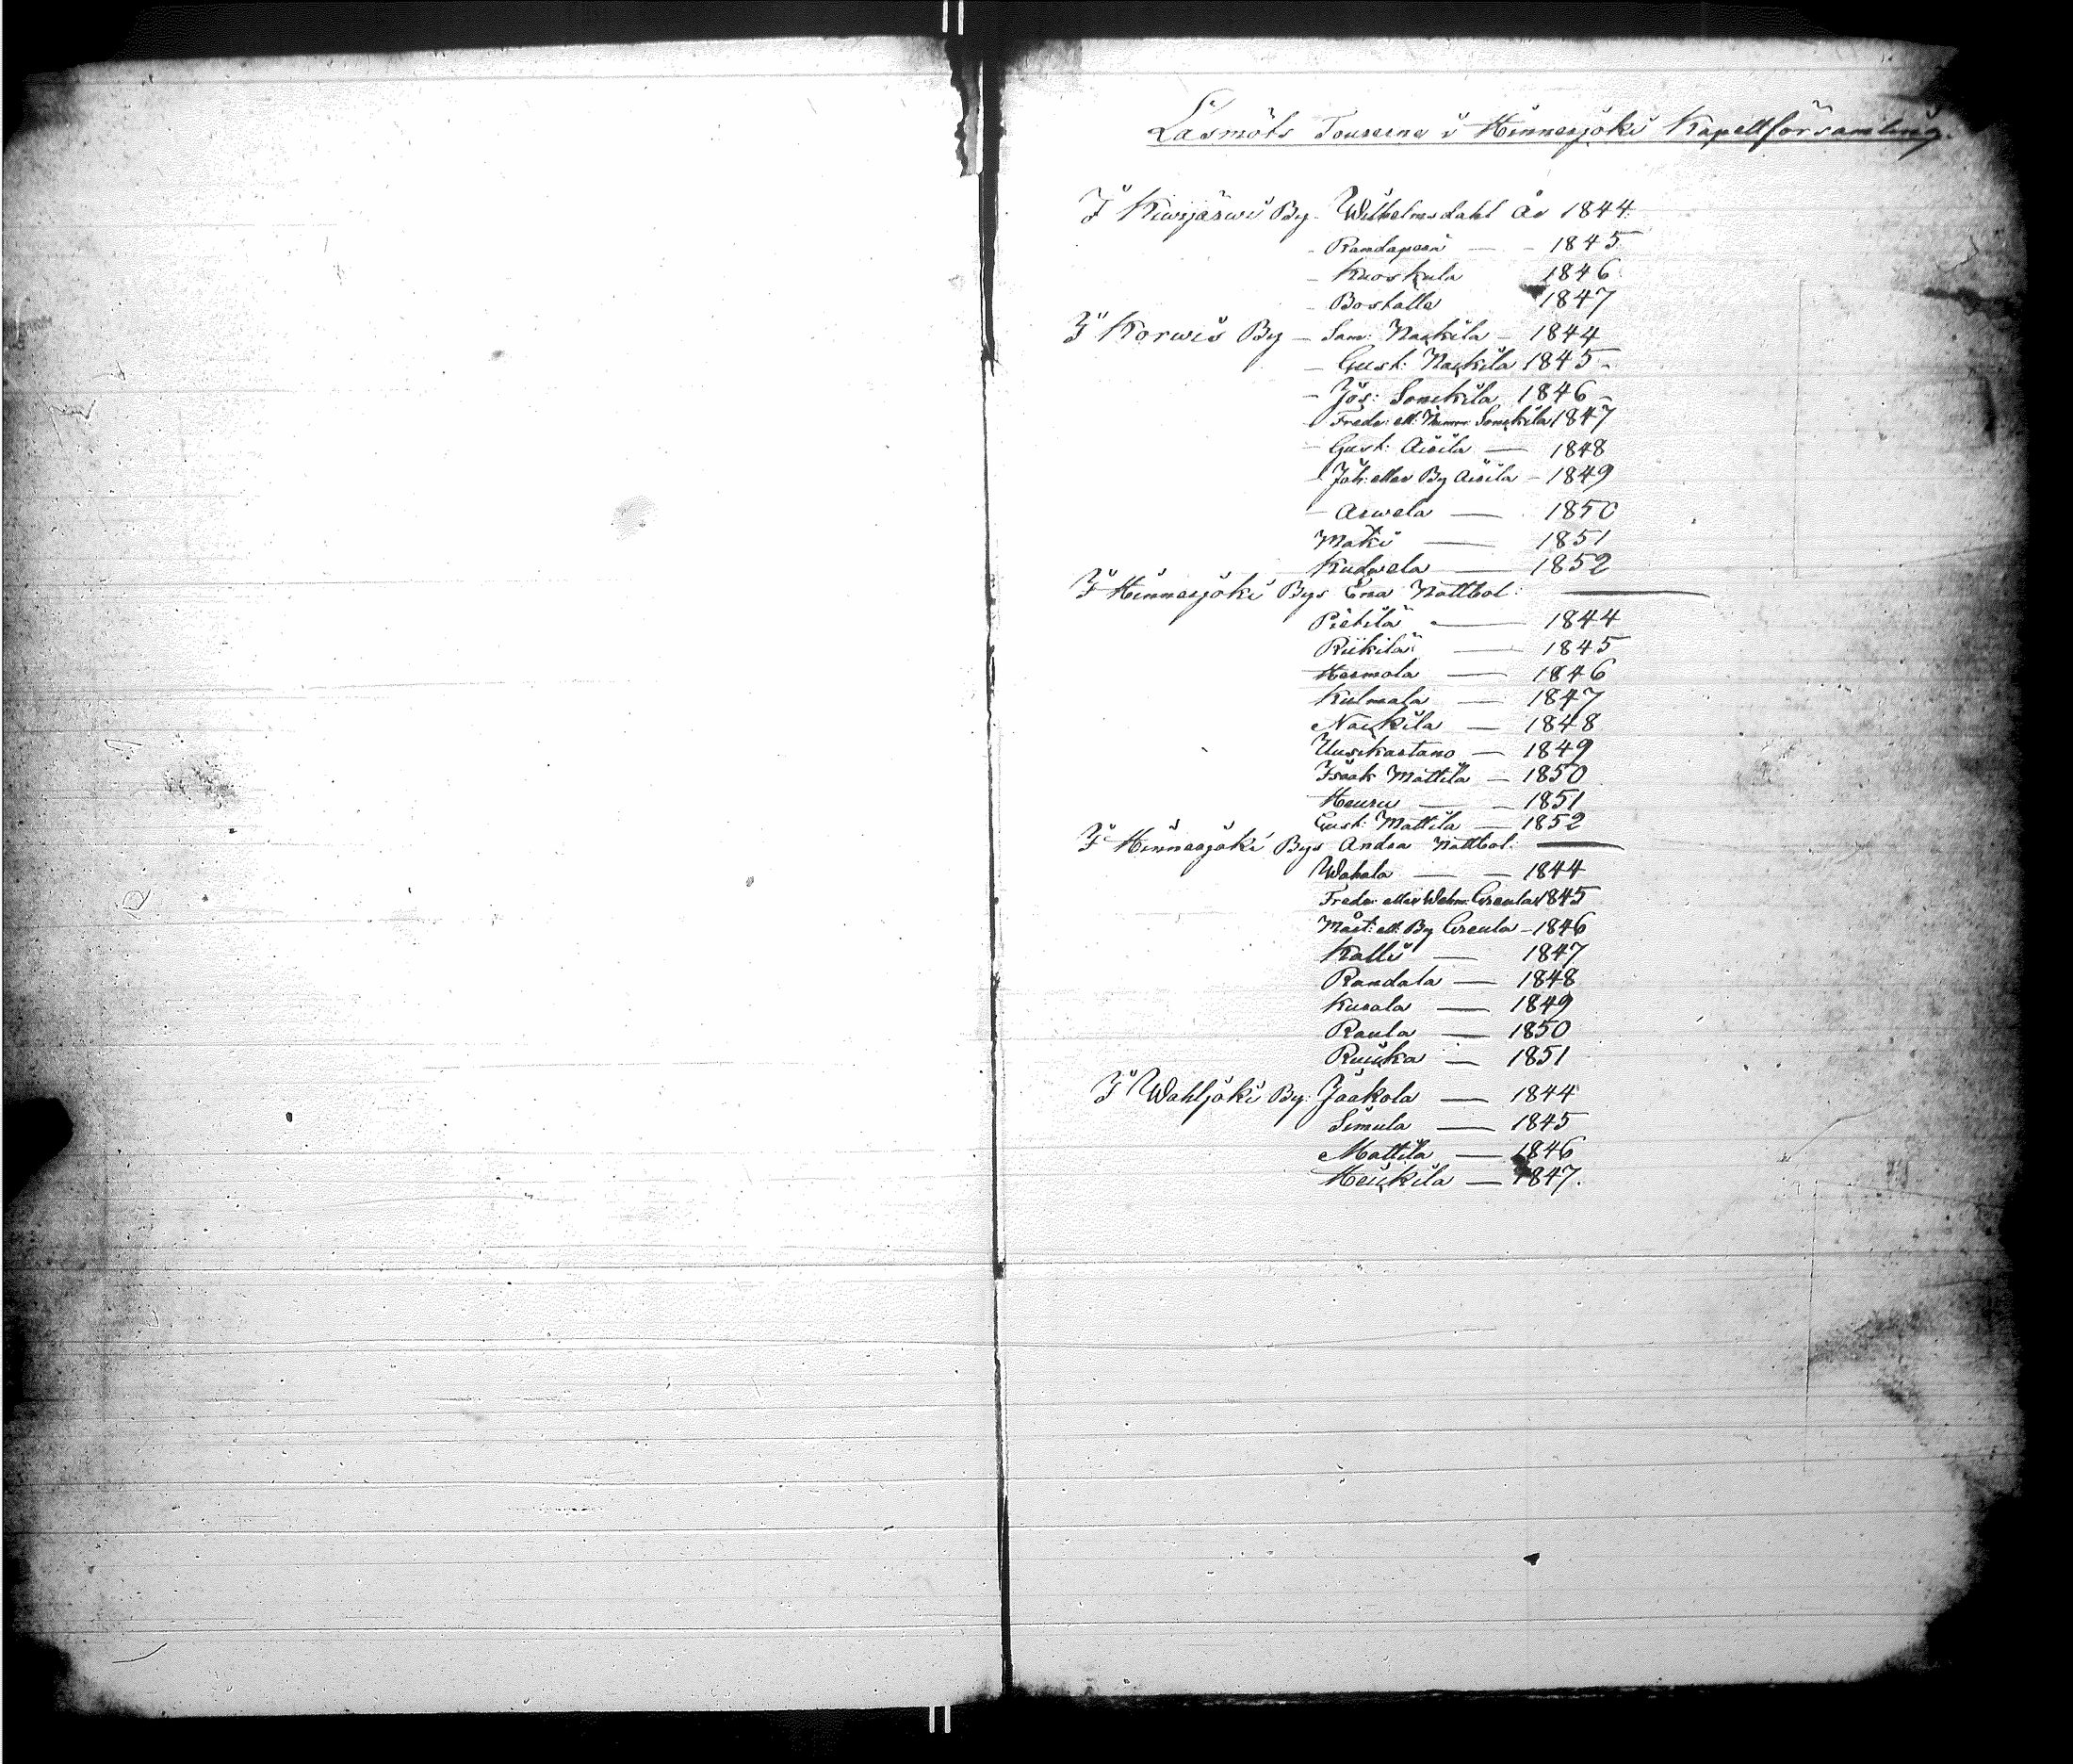 Läsmöts Tourerne i Hinnerjoki Kapellförsamling.
I Kiwijärwi By - Wilhelmsdahl År 1844.
- Randapere — - 1845
- Kuoskula 1846
- Bostället 1847
I Korwis By - Sam: Nackila - 1844
- Gust: Nackila 1845 -
- Jos: Sonckila 1846 -
- Fredr: ell: Sonckila 1847
- Gust: Aisila — 1848
- Joh: eller By Aisila - 1849
- Arwela — 1850
Mäki — 1851
Kudwela — 1852
I Hinnerjoki Bys Ena Nattbol: —
Pietilä — 1844
Riikilä — 1845
Hermola — 1846
Kulmala — 1847
Nackila — 1848
Uusikartano — 1849
Isaak Mattila — 1850
Heuru — - 1851
Gust: Mattila — 1852
I Hinnerjoki Bys Andra Nattbol: —
Wahala — — 1844
Fredr: eller Wahm: Greula 1845
Mårt: ell: By Greula - 1846
Kalli — 1847
Randala — 1848
Kusala — 1849
Raula — 1850
Ruuska — 1851
I Wahljoki By: Jaakola — 1844
Simula — 1845
Mattila — 1846
Heickila — 1847.